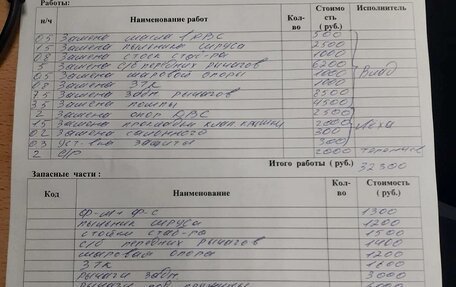 Работы:
н/ч Наименование работ Кол-во Стоимость ( руб.) Исполнитель
0.5 Замена масла ДВС 500
1.5 Замена пыльник шруса 2500
0.8 Замена стоек стаб-ра 1000
5 Замена с/б передних рычагов 6200
0.5 Замена шаровой опоры 1000 Влад
0.8 Замена ЗТК
Замена задн рычагов 8500
3.5 Замена помпы 4500
2 Замена опор ДВС 2500
1.5 Замена прокладки клап. крышки 2000 Лёха
0.2 Замена салонного 300
0.3 Уст-вка защита 300
2 С/Р 2000
Итого работы ( руб.) 32300
Запасные части :
Код Наименование Кол-во Стоимость ( руб.)
Ф-М + Ф-С 1300
Пыльник шруса 1200
Стойки стаб-ра 1500
С/б передних рычагов
Шаровая опора 1200
ЗТК 1600
Рычаги задн 3000
Рычаги